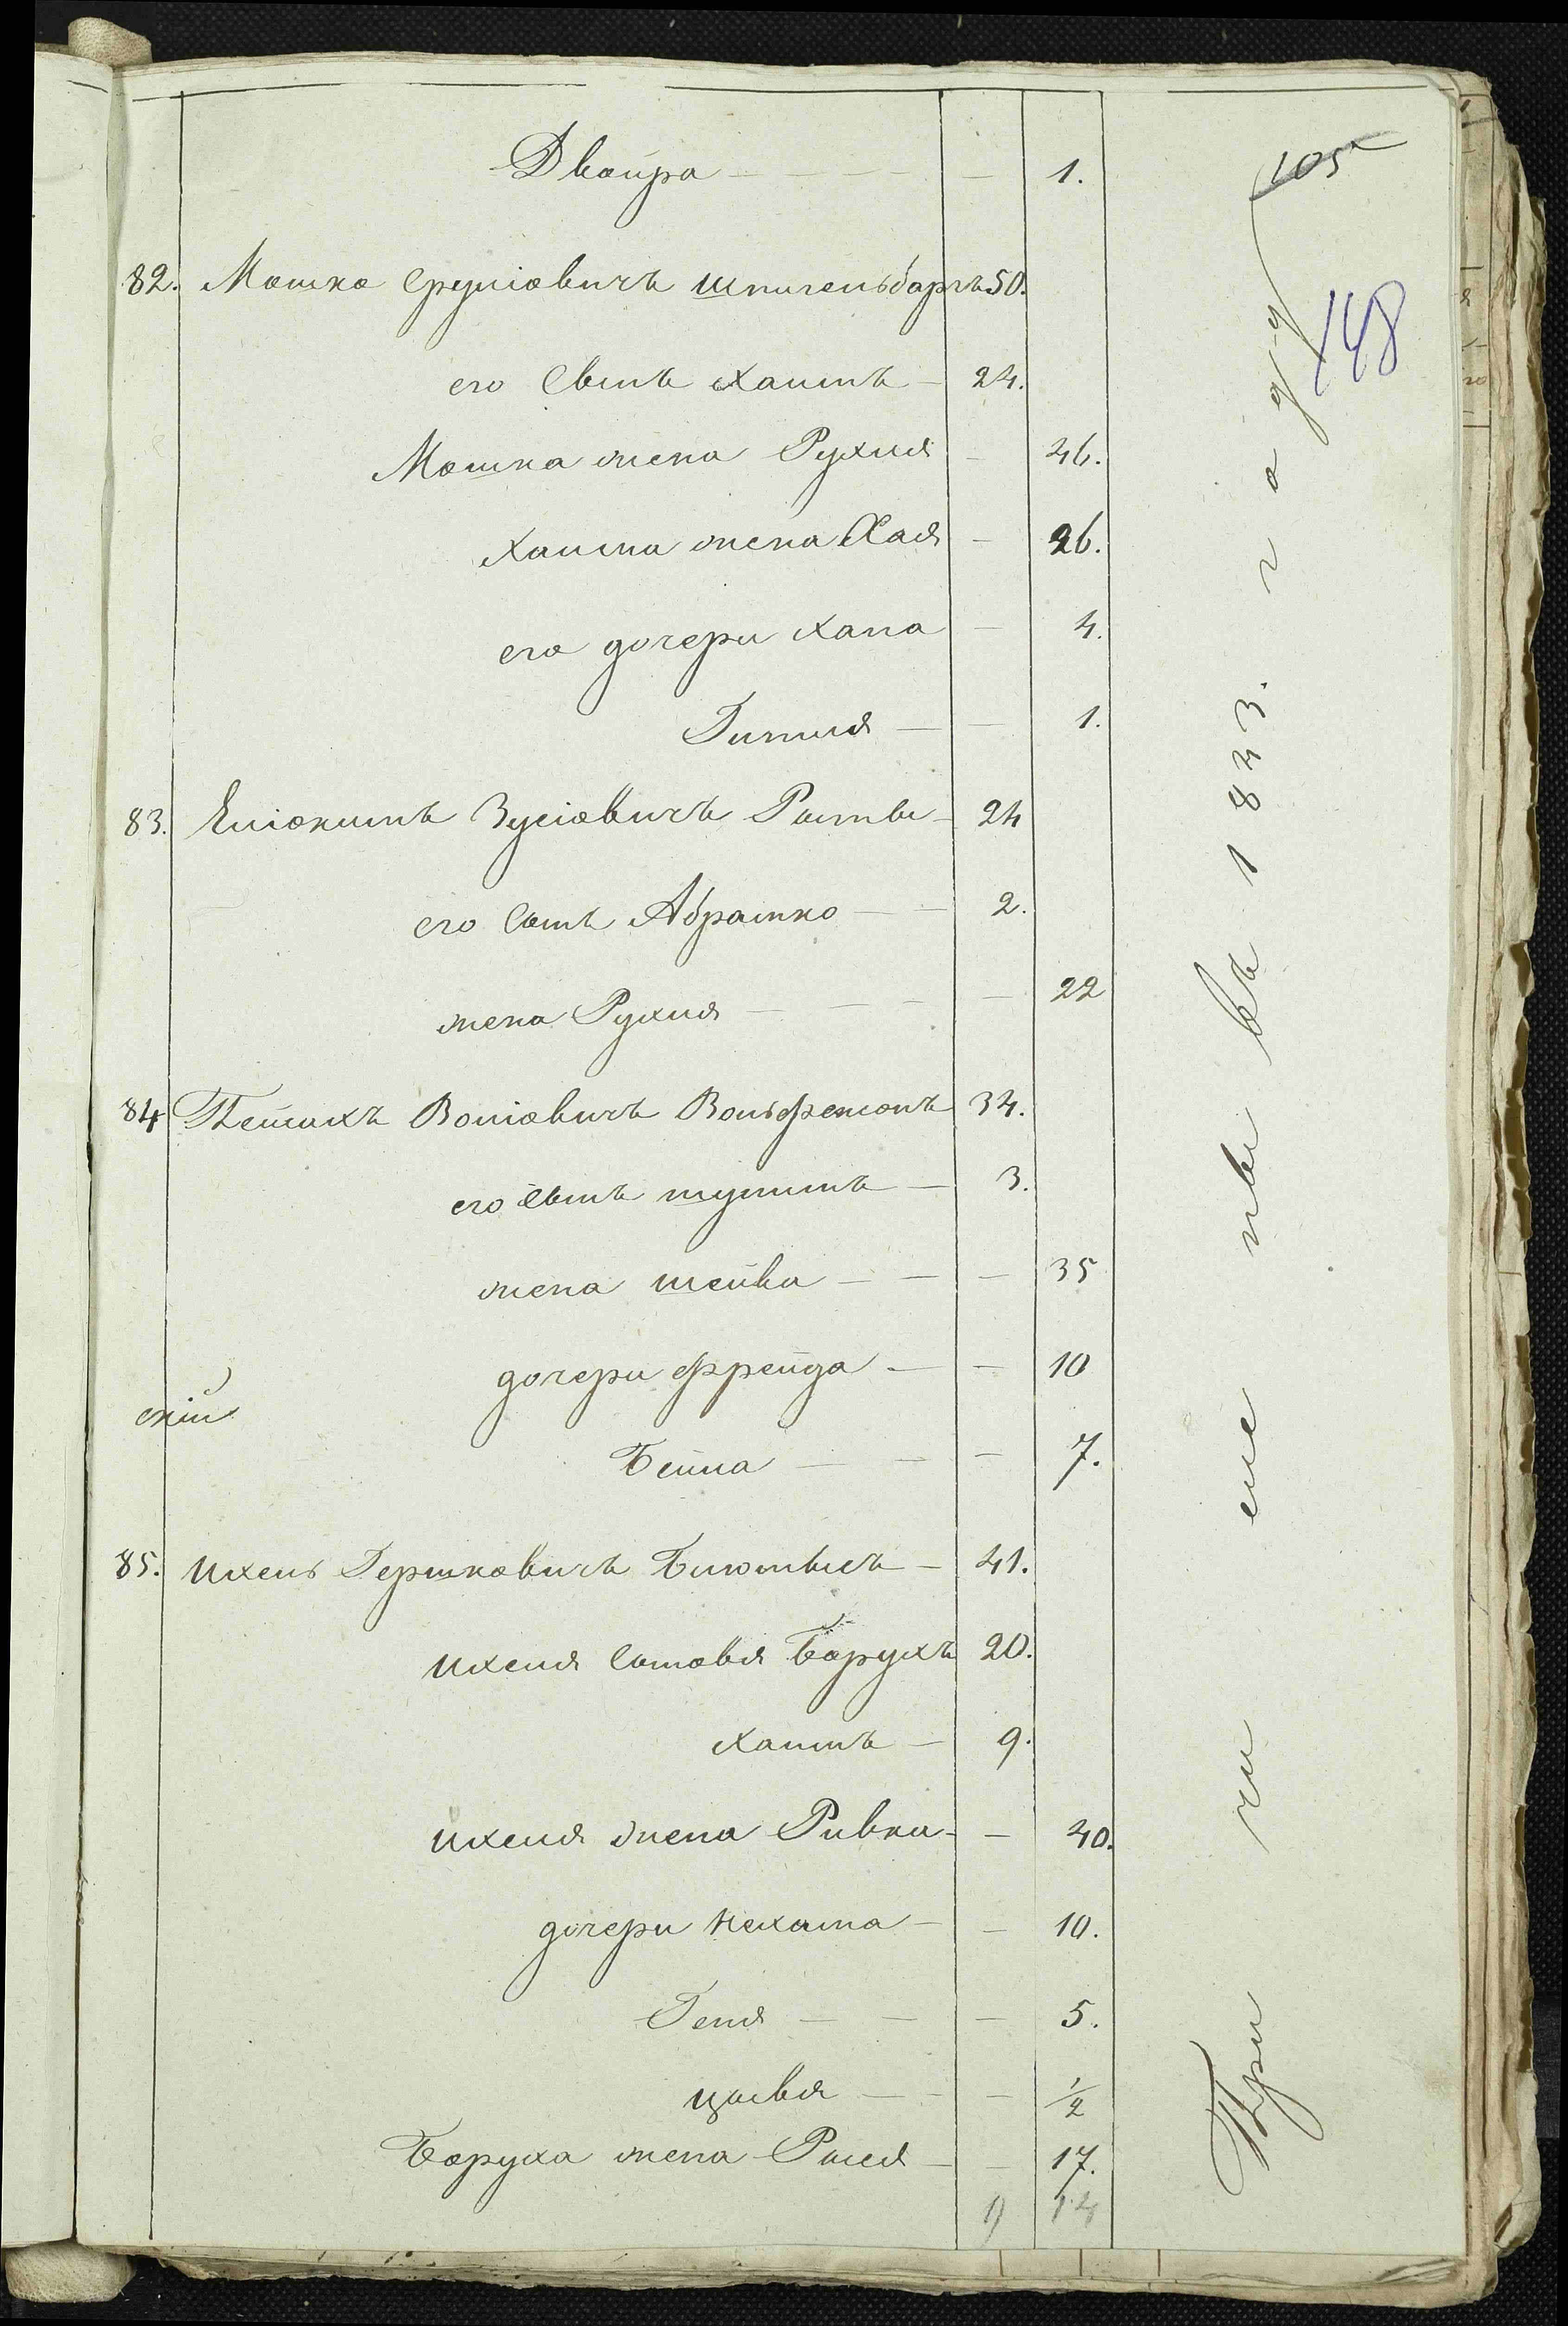 105
148
Двойра — — — — — 1.
82. Мошко Сруліовичъ Шпигельбаргъ 50.
его Сынъ Хаимъ — 24.
Мошка жена Рухля — 46.
Хаима жена Хая — 26.
его дочери Хана — 4.
Гитля — — 1.
83. Еліокимъ Зусіовичъ 24
его Сынъ Абрамко — — 2.
жена Рухля — — — — 22
84 Пейсахъ Воліовичъ Вольфензонъ 34.
его Сынъ Шулимъ — 3.
жена Шейва — — — 35
дочери Фрейда — — 10
скій
Бейла — — — 7.
85. Ихель Гершковичъ 41.
Ихеля Сыновья Борухъ 20.
Хаимъ — 9.
Ихеля жена Ривка — — 40.
дочери Нехама — — 10.
Геня — — — 5.
Цывья — — — 1/2
Боруха жена Рыся — — 17.
9 14
При чи сле ны въ 1843. году